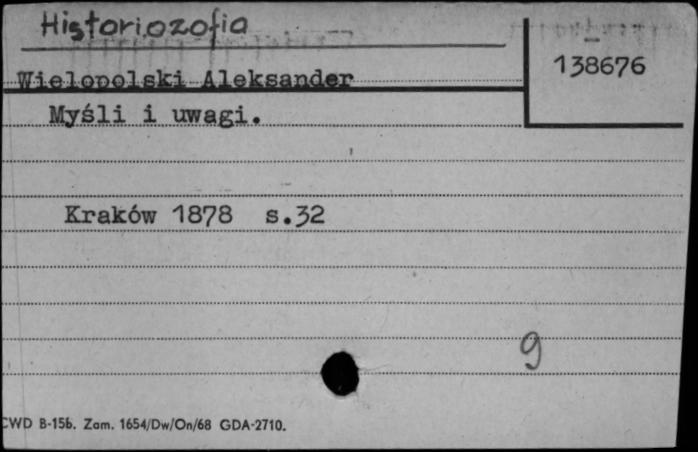 Historiozofia
138676
Wielopolski Aleksander
Myśli i uwagi.
Kraków 1878 s.32
9
CWD B-15b. Zam. 1654/Dw/On/68 GDA-2710.